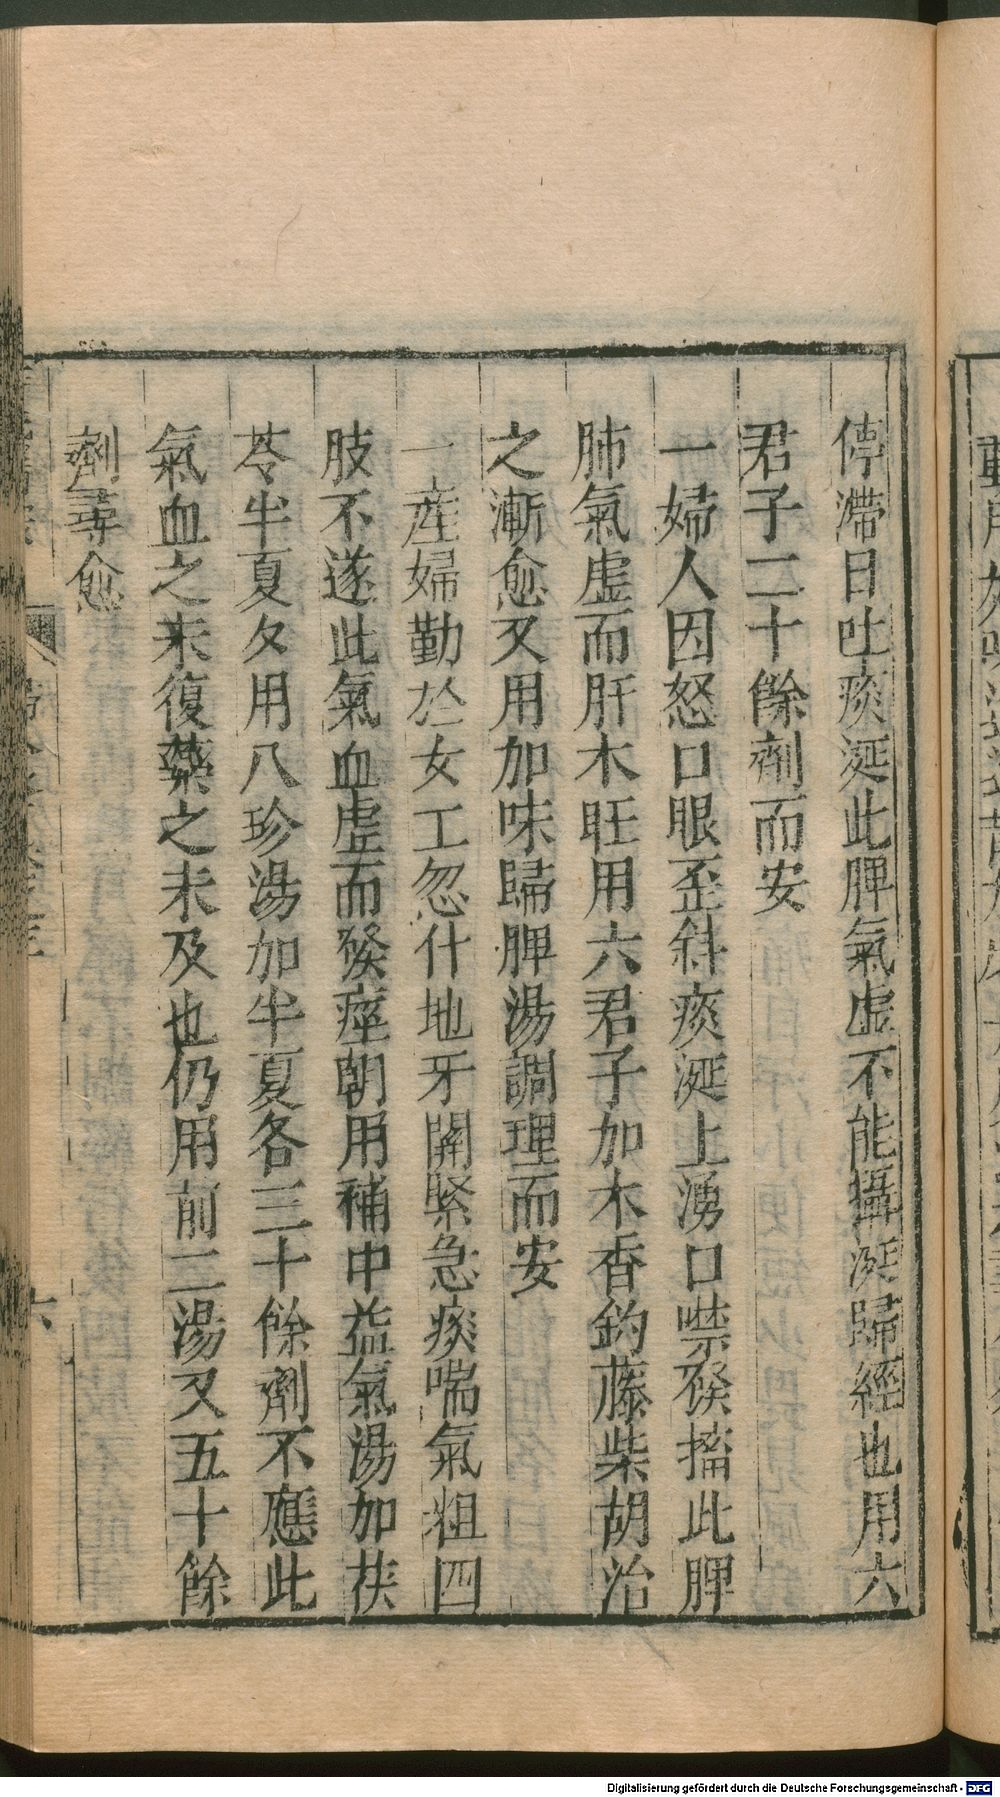 停滯日吐痰涎此脾氣虛不能攝涎歸經也用六
君子二十餘劑而安
一婦人因怒口眼歪斜痰涎上湧口噤發搐此脾
肺氣虛而肝木旺用六君子加木香釣藤柴胡治
之漸愈又用加味歸脾湯調理而安
一產婦勤於女工忽什地牙關緊急痰喘氣粗四
肢不遂此氣血虛而發痙朝用補中益氣湯加茯
苓半夏夕用八珍湯加半夏各三十餘劑不應此
氣血之未復藥之未及也仍用前二湯又五十餘
劑尋愈
六
Digitalisierung gefördert durch die Deutsche Forschungsgemeinschaft - DFG